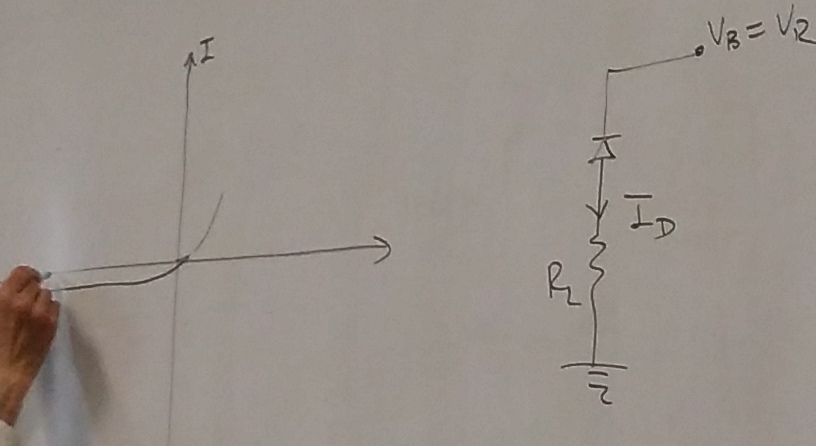 I
V_B = V_R
I_D
R_L